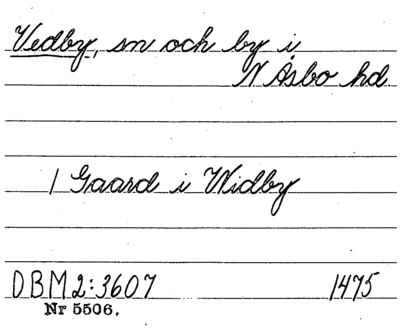 Vedby, sn och by i
N Åsbo hd
1 Gaard i Widby
DBM 2:3607 1475
Nr 5506.